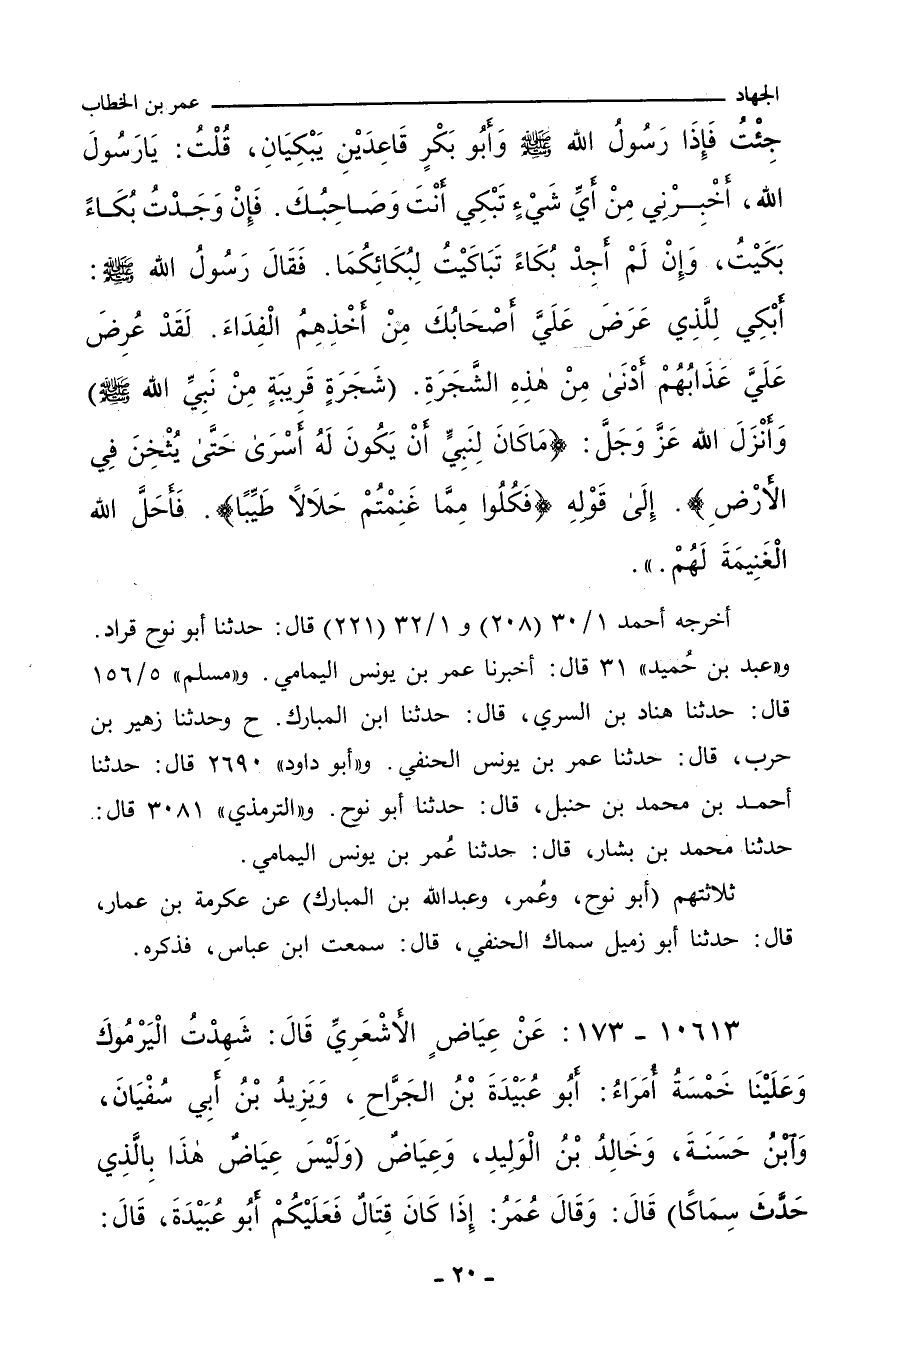 الجهاد ـــــــــــــــــــــ عمر بن الخطاب
جِئْتُ فَإِذَا رَسُولُ الله ﷺ وَأَبُو بَكْرٍ قَاعِدَيْنِ يَبْكِيَانِ، قُلْتُ: يَارَسُولَ
الله، أَخْبِرْنِي مِنْ أَيِّ شَيْءٍ تَبْكِي أَنْتَ وَصَاحِبُكَ. فَإِنْ وَجَدْتُ بُكَاءً
بَكَيْتُ، وَإِنْ لَمْ أَجِدْ بُكَاءً تَبَاكَيْتُ لِبُكَائِكُمَا. فَقَالَ رَسُولُ الله ﷺ:
أَبْكِي لِلَّذِي عَرَضَ عَلَيَّ أَصْحَابُكَ مِنْ أَخْذِهِمُ الْفِدَاءَ. لَقَدْ عُرِضَ
عَلَيَّ عَذَابُهُمْ أَدْنَىٰ مِنْ هٰذِهِ الشَّجَرَةِ. (شَجَرَةٍ قَرِيبَةٍ مِنْ نَبِيِّ الله ﷺ)
وَأَنْزَلَ الله عَزَّ وَجَلَّ: ﴿مَاكَانَ لِنَبِيٍّ أَنْ يَكُونَ لَهُ أَسْرَىٰ حَتَّىٰ يُثْخِنَ فِي
الأَرْضِ﴾. إِلَىٰ قَوْلِهِ ﴿فَكُلُوا مِمَّا غَنِمْتُمْ حَلَالًا طَيِّبًا﴾. فَأَحَلَّ الله
الْغَنِيمَةَ لَهُمْ.».
أخرجه أحمد ٣٠/١ (٢٠٨) و ٣٢/١ (٢٢١) قال: حدثنا أبو نوح قراد.
و«عبد بن حُميد» ٣١ قال: أخبرنا عمر بن يونس اليمامي. و«مسلم» ١٥٦/٥
قال: حدثنا هناد بن السري، قال: حدثنا ابن المبارك. ح وحدثنا زهير بن
حرب، قال: حدثنا عمر بن يونس الحنفي. و«أبو داود» ٢٦٩٠ قال: حدثنا
أحمد بن محمد بن حنبل، قال: حدثنا أبو نوح. و«الترمذي» ٣٠٨١ قال:
حدثنا محمد بن بشار، قال: حدثنا عُمر بن يونس اليمامي.
ثلاثتهم (أبو نوح، وعُمر، وعبدالله بن المبارك) عن عكرمة بن عمار،
قال: حدثنا أبو زميل سماك الحنفي، قال: سمعت ابن عباس، فذكره.
١٠٦١٣ - ١٧٣: عَنْ عِيَاضٍ الأَشْعَرِيِّ قَالَ: شَهِدْتُ الْيَرْمُوكَ
وَعَلَيْنَا خَمْسَةُ أُمَرَاءُ: أَبُو عُبَيْدَةَ بْنُ الجَرَّاحِ، وَيَزِيدُ بْنُ أَبِي سُفْيَانَ،
وَآبْنُ حَسَنَةَ، وَخَالِدُ بْنُ الْوَلِيدِ، وَعِيَاضٌ (وَلَيْسَ عِيَاضٌ هٰذَا بِالَّذِي
حَدَّثَ سِمَاكًا) قَالَ: وَقَالَ عُمَرُ: إِذَا كَانَ قِتَالٌ فَعَلَيْكُمْ أَبُو عُبَيْدَةَ، قَالَ:
- ٢٠ -